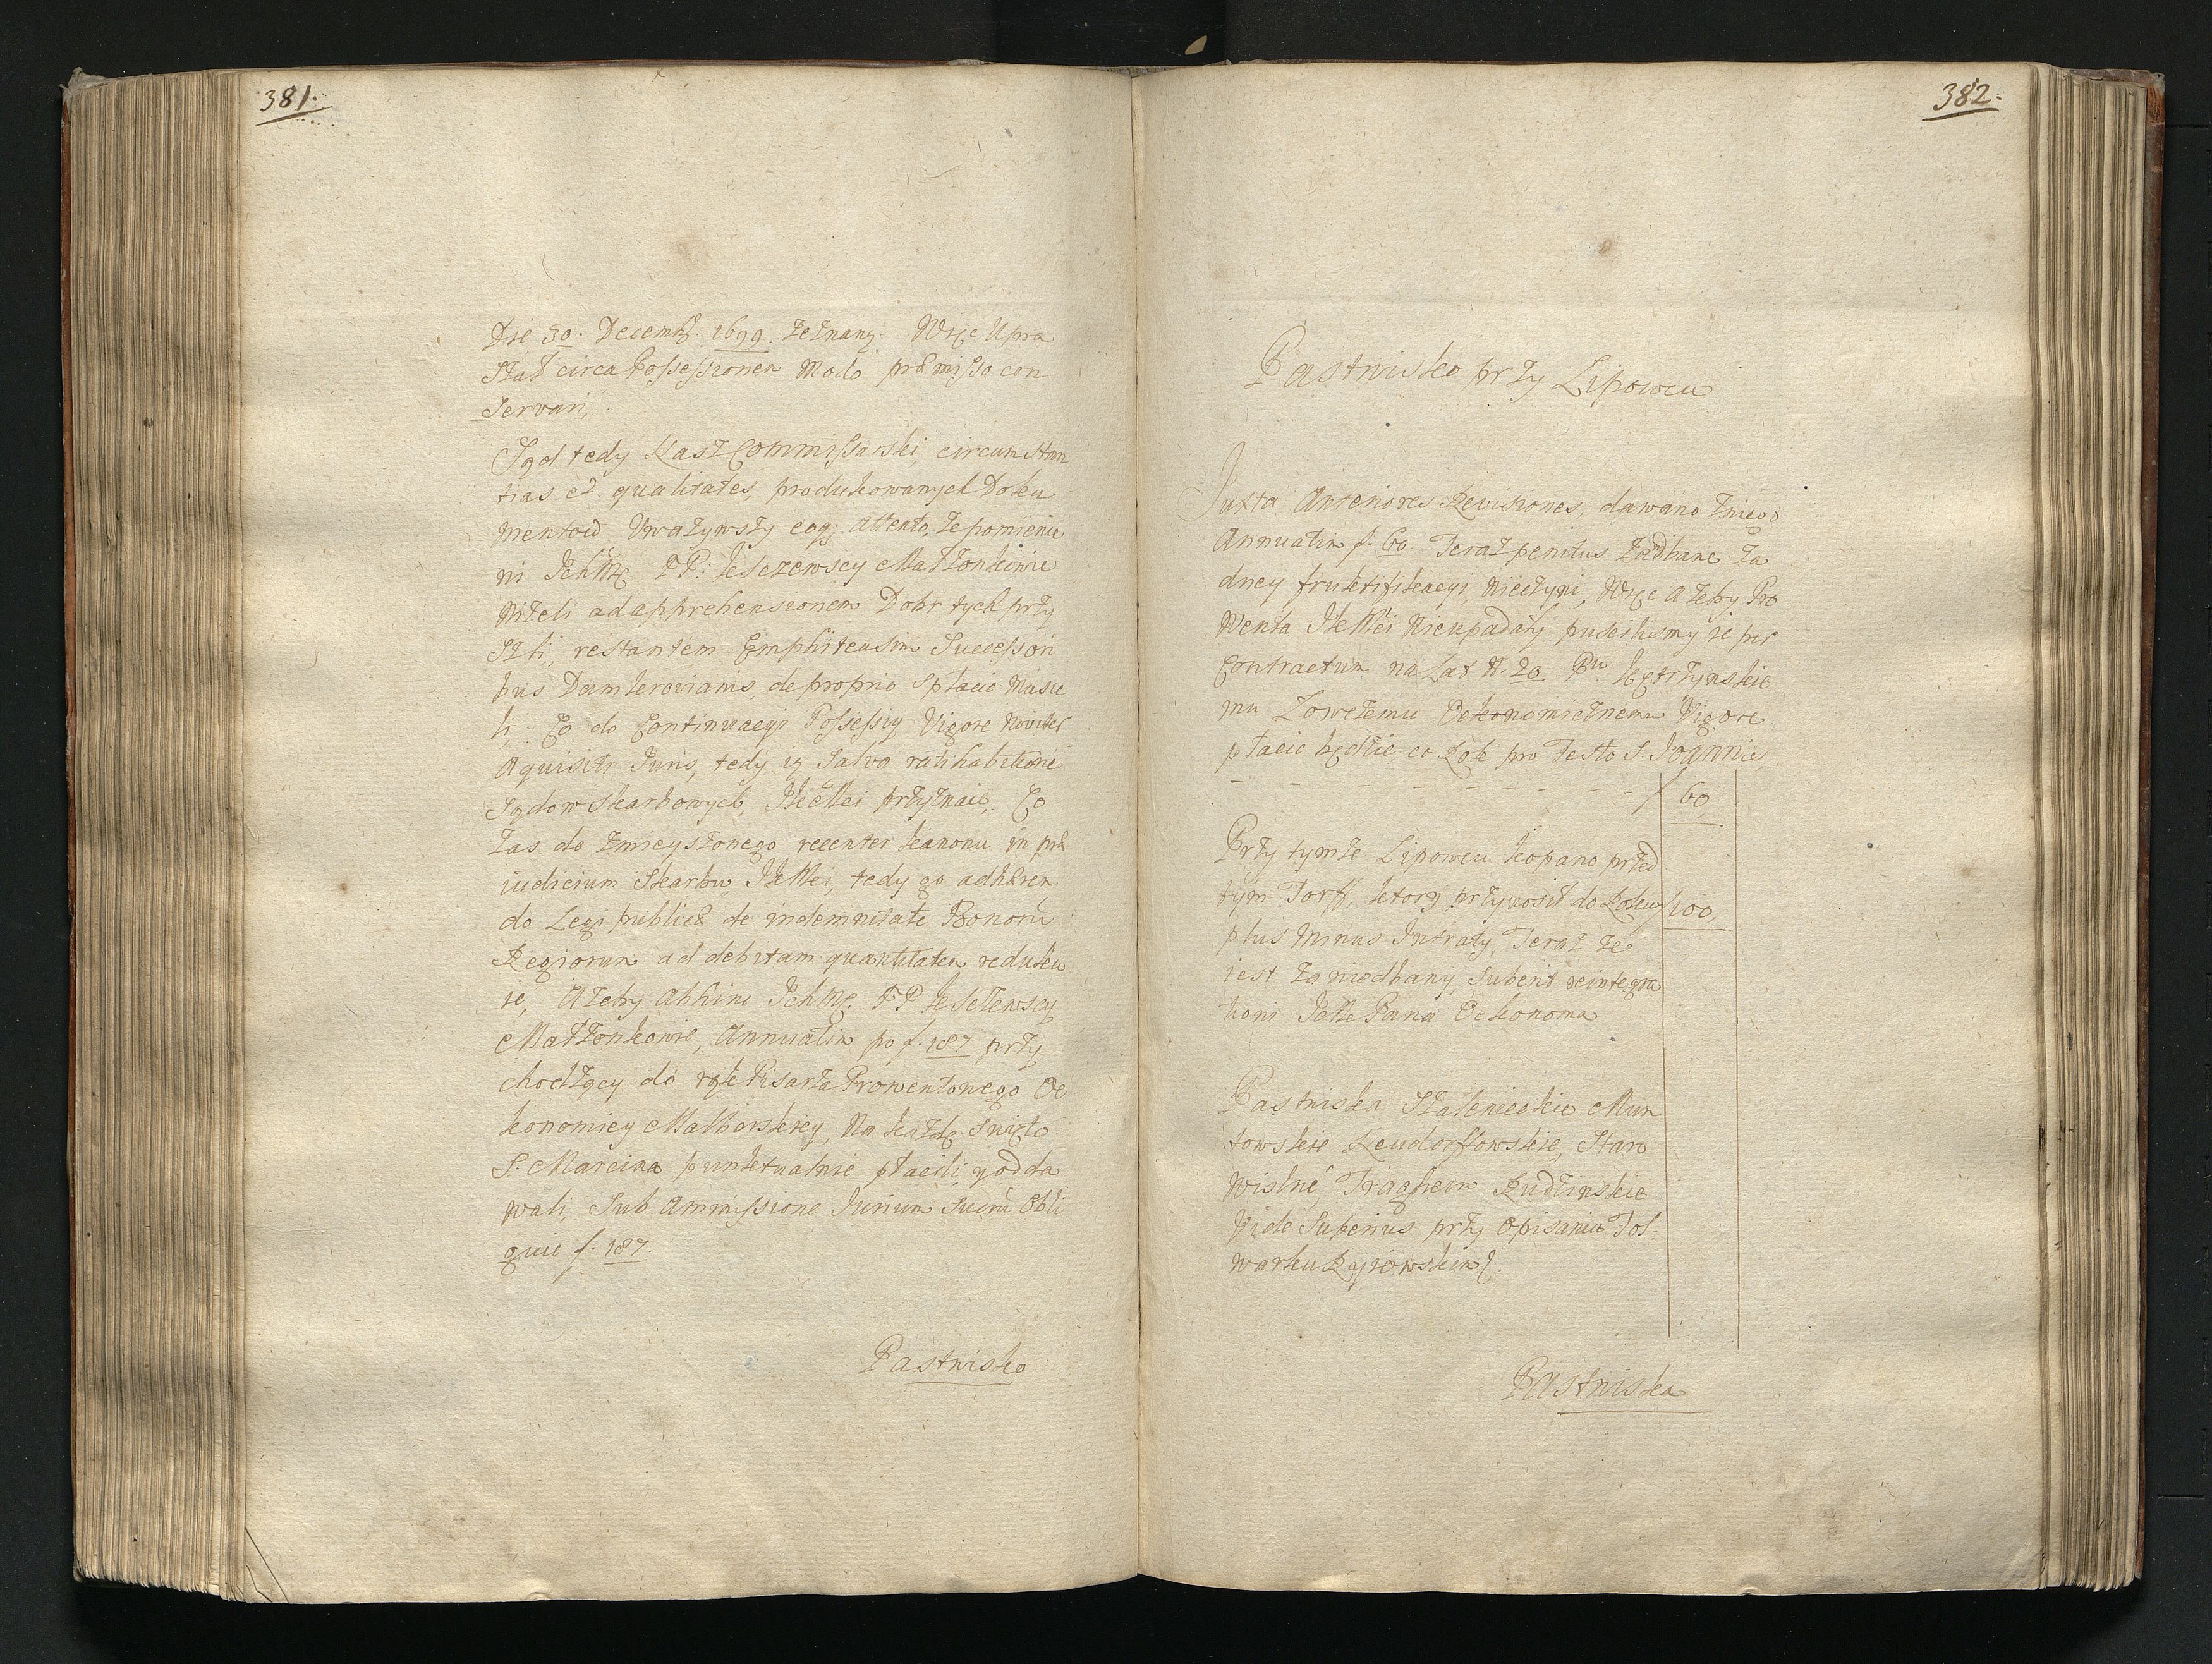 381.
Die 30. Decemb. 1699. zeznany. Więc Upra
szaſ circa Possessionem Modo præmisso con
servari,
Sąd tedy Nasz Commissarski, circumstan
tias et qualitates, produkowanych Doku
mentow Uważywszy eoq; attento, że pomienie
ni IchMć PP: Kesczewscy Małżonkowie
Niżeli ad apprehensionem Dobr tych przy
szli, restantem Emphiteusim Successori
bus Damkerovianis, de proprio spłacic musie
li, Co do Continuacyi Possessiy Vigore Noviter
Aquisiti Iuris, tedy ią Salva ratihabitione
Sądow Skarbowych, JKMci przyznaie, Co
zas do zmieyszonego recenter kanonu in præ
iudicium Skarbu JKMci, tedy go adhæren
do Legi publicæ de indemnitate Bonorū
Regiorum ad debitam quantitatem reduku
ie, Ażeby abhinc IchMć PP Kesczewscy
Małżonkowie, Annuatim po f. 187 przy
chodzący do rąk Pisarza Prowentowego Oe
konomiey Malborskiey, Na każde Swięto
S. Marcina punktualnie płacili, y odda
wali, Sub Amissione Iurium Suorū Obli
guie f. 187.
Pastwisko
382.
Pastwisko przy Lipowcu
Juxta Anteriores Revisiones, dawano Zniego
Annuatim f. 60 Teraz penitus Zadbane Ża
dney fruktifikacyi Nieczyni, Więc Ażeby Pro
wenta JKMci Nieupadały, puscilismy ie per
Contractum na Lat N. 20. Pu Kętrzynskie
mu Łowczemu Oekonomicznemu Vigore
płacic będzie, co Rok pro Festo S. Joannis
f 60
Przy tymże Lipowcu kopano przed
tym Torff, ktory przynosił do Roku f 100,
plus Minus Intraty, Teraz że
iest Zaniedbany, Suberit reintegra
tioni JMć Pana Oekonoma
Pastwiska Szalenieckie Mun
towskie Neudorffowskie, Staro
Wislne, Tragheim Rudzinskie
Vide Superius przy Opisaniu Fol-
warku Ryiowskim
Pastwiska